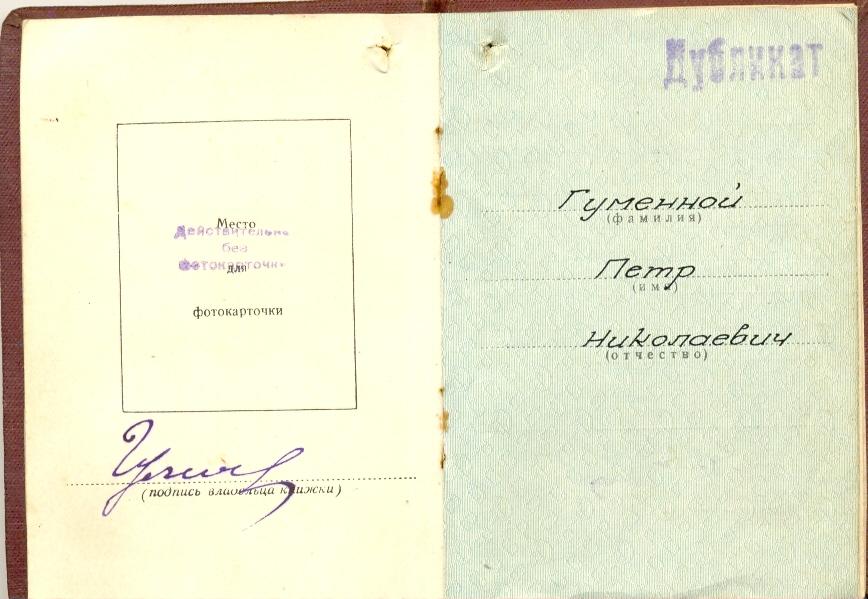 Место
Действительно
без
для
фотокарточки
фотокарточки
(подпись владельца книжки)
Дубликат
Гуменной
(фамилия)
Петр
(имя)
Николаевич
(отчество)